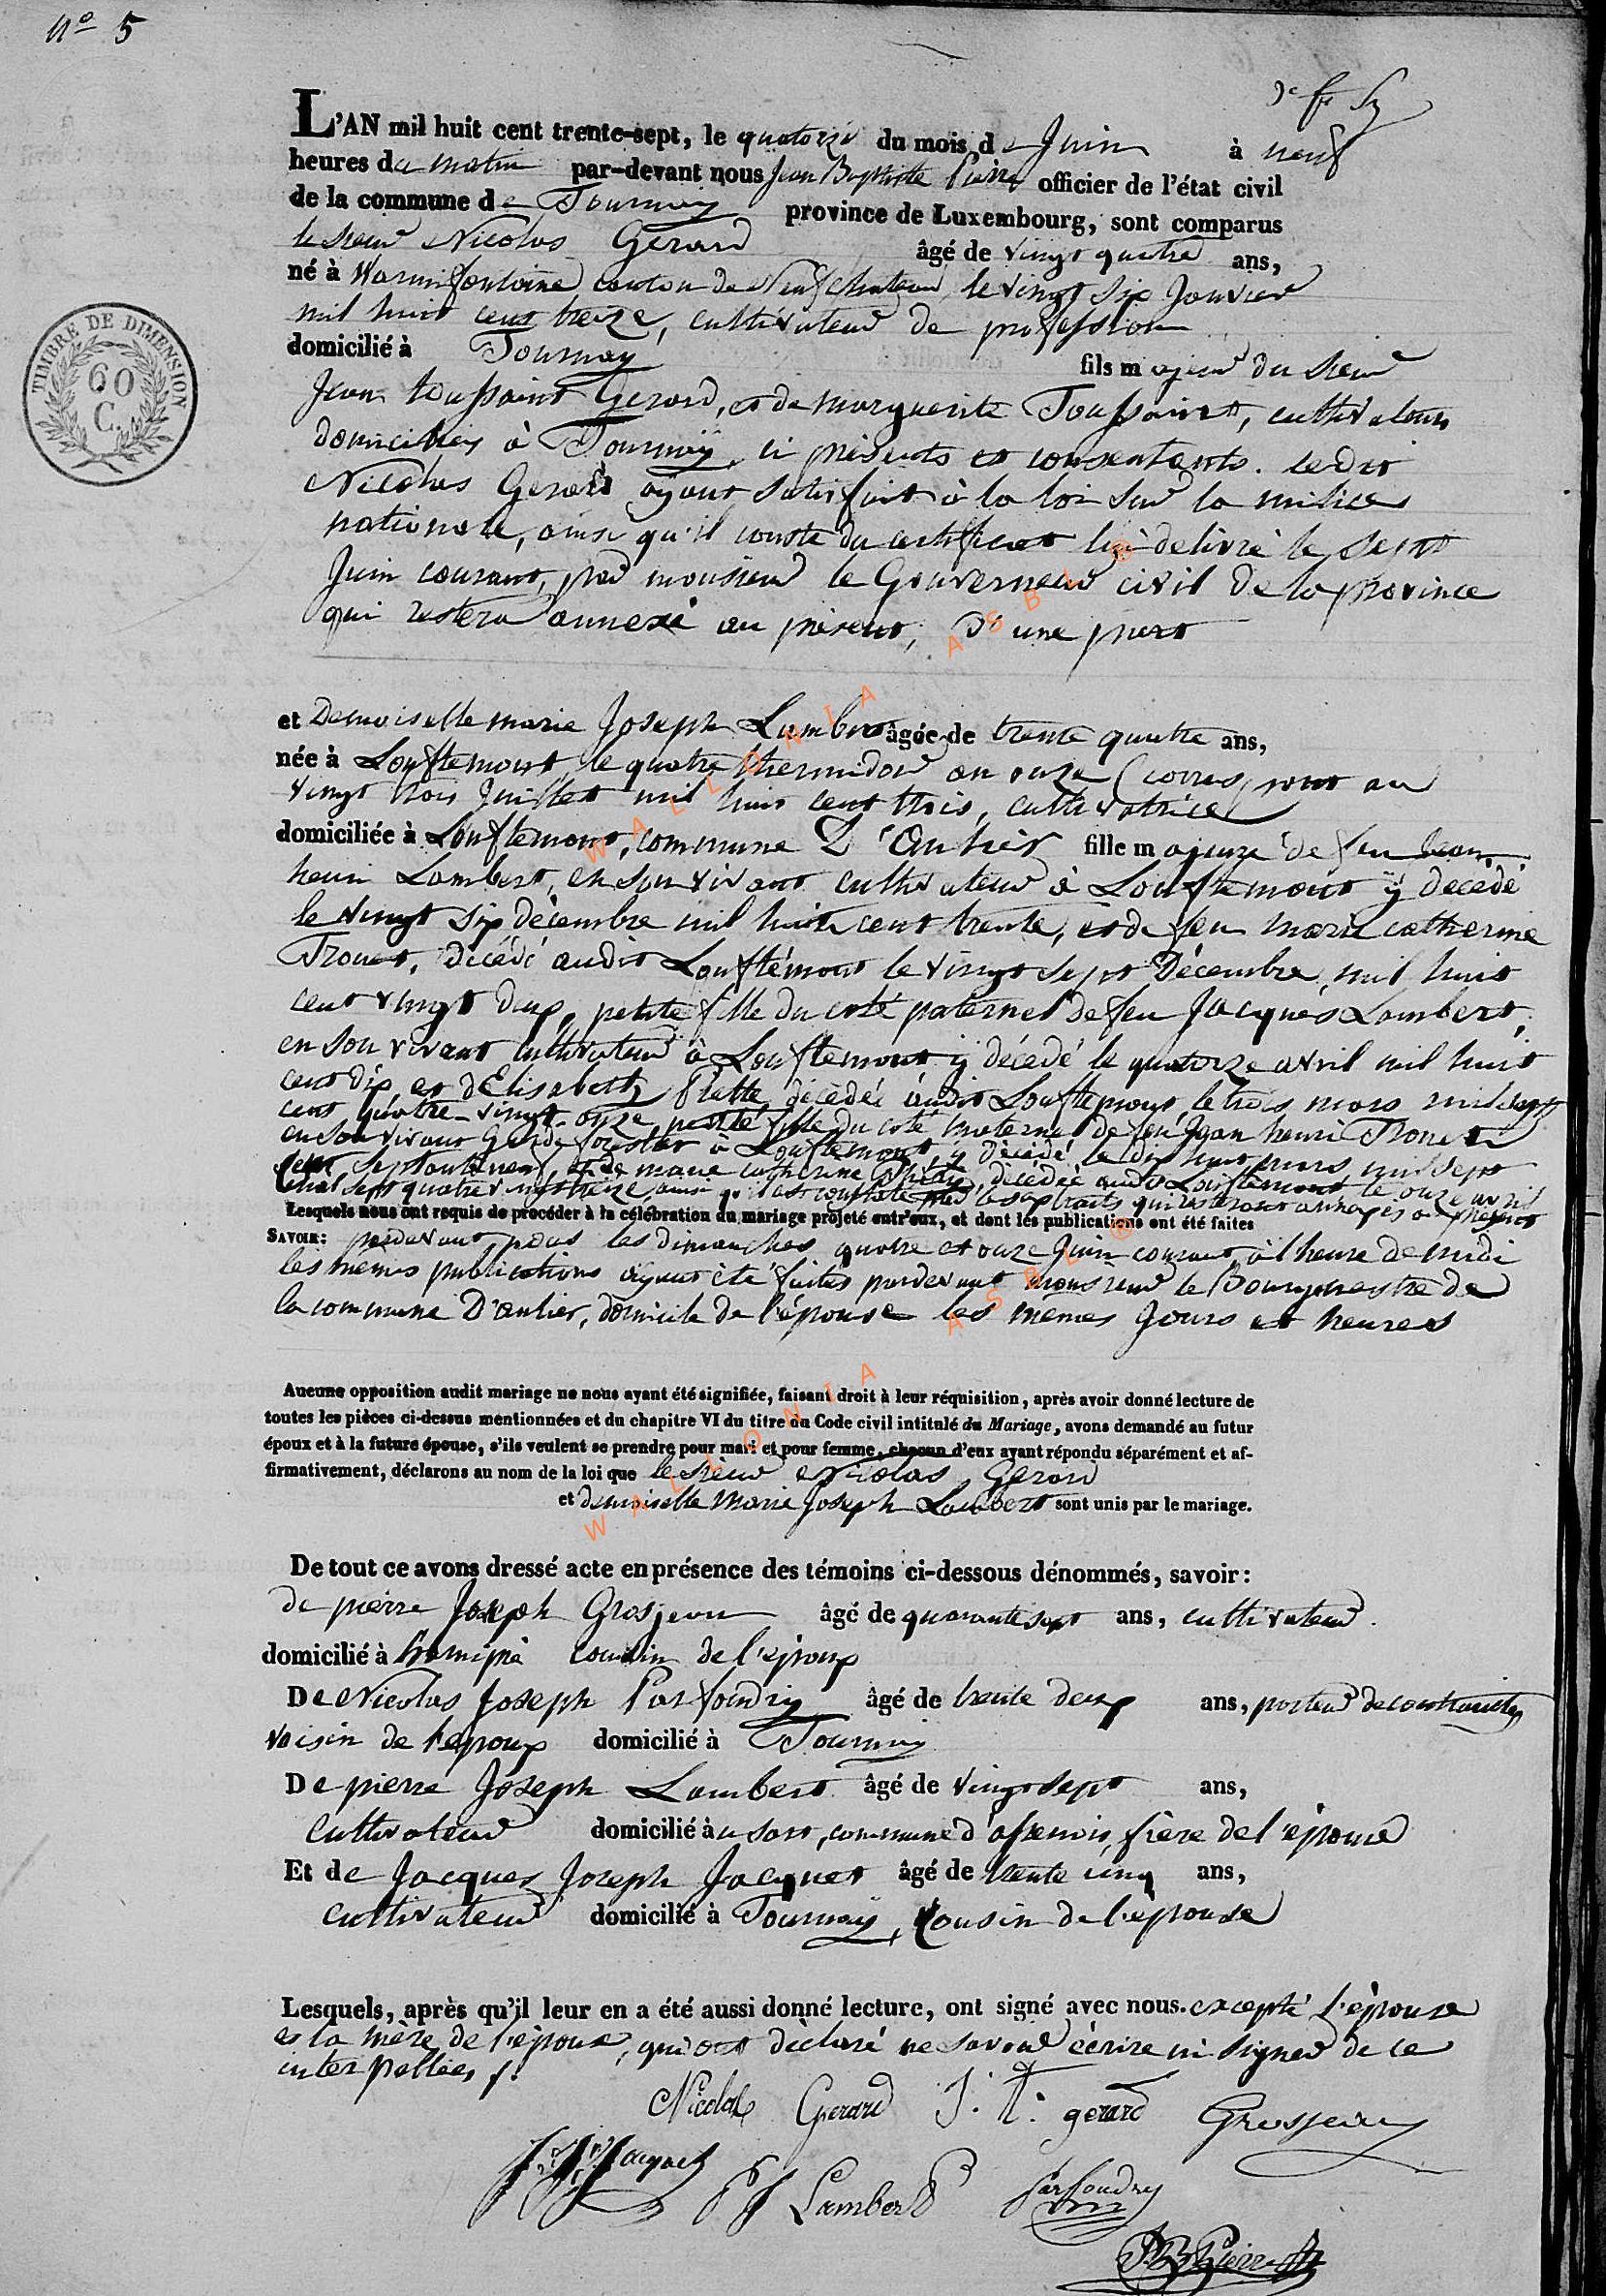 N° 5
L'AN mil huit cent trente-sept, le quatorze du mois de Juin à neuf
heures du matin par-devant nous Jean Baptiste Pierre officier de l'état civil
de la commune de Tournay province de Luxembourg, sont comparus
le sieur Nicolas Gerard âgé de vingt quatre ans,
né à Warmifontaine canton de Neufchateau, le vingt six Janvier
mil huit cent treize, cultivateur de profession
domicilié à Tournay fils majeur du sieur
Jean toussaint Gerard, et de marguerite Toussaint, cultivateurs
domiciliés à Tournay, ci présents et consentants. ledit
Nicolas Gerard ayant satisfait à la loi sur la milice
nationale, ainsi qu'il conste du certificat lui délivré le sept
Juin courant, par monsieur le Gouverneur civil de la province
qui restera annexé au présent, d'une part
et Demoiselle marie Joseph Lambert âgée de trente quatre ans,
née à Louftemont, le quatre thermidor an onze (correspont au
vingt trois Juillet mil huit cent trois, cultivatrice
domiciliée à Louftemont, commune d'Anlier fille majeure de feu Jean
henri Lambert, en son vivant cultivateur à Louftemont y décédé
le vingt six décembre mil huit cent trente, et de feu marie catherine
Tronet, décédé audit Louftémont le vingt sept Décembre mil huit
cent vingt deux, petite fille du coté paternel de feu Jacques Lambert,
en son vivant cultivateur à Louftemont y décédé le quatorze avril mil huit
cent dix, et d'Elisabeth décédée audit Louftemont, le trois mars mil sept
cent quatre-vingt-onze, petite fille du coté maternel de feu Jean henri Tronet
en son vivant Garde forestier à Louftemont, y décédé le dix huit mars mil sept
cent septante neuf, et de marie catherine décédée audit Louftemont le onze avril
mil sept quatre vingt treize, ainsi qu'il est constaté par les extraits qui resteront annexés au présent
Lesquels nous ont requis de procéder à la célébration du mariage projeté entr'eux, et dont les publications ont été faites
SAVOIR: pardevant nous les dimanches quatre et onze Juin courant à l'heure de midi
les mêmes publications ayant été faites pardevant monsieur le Bourgmestre de
la commune D'anlier, domicile de l'épouse les memes Jours et heures
Aucune opposition audit mariage ne nous ayant été signifiée, faisant droit à leur réquisition, après avoir donné lecture de
toutes les pièces ci-dessus mentionnées et du chapitre VI du titre du Code civil intitulé du Mariage, avons demandé au futur
époux et à la future épouse, s'ils veulent se prendre pour mari et pour femme, chacun d'eux ayant répondu séparément et af-
firmativement, déclarons au nom de la loi que le sieur Nicolas Gerard
et demoiselle Marie Joseph Lambert sont unis par le mariage.
De tout ce avons dressé acte en présence des témoins ci-dessous dénommés, savoir:
de pierre Joseph Grosjean âgé de quarante sept ans, cultivateur
domicilié à cousin de l'époux
De Nicolas Joseph Parfondry âgé de trente deux ans, porteur de contraintes
voisin de l'époux domicilié à Tournay
De pierre Joseph Lambert âgé de vingt sept ans,
cultivateur domicilié à u sart, commune d'assenois, frère de l'épouse
Et de Jacques Joseph Jacquet âgé de trente cinq ans,
cultivateur domicilié à Tournay, cousin de l'épouse
Lesquels, après qu'il leur en a été aussi donné lecture, ont signé avec nous. excepté l'épouse
et la mère de l'époux, qui ont déclaré ne savoir écrire ni signer de ce
interpellées ./.
Nicolas Gerard J. t. gerard Grosjean
J. J. Jacquet P J Lambert Parfondry
JB Pierre
TIMBRE DE DIMENSION
60
C.
WALLONIA ASBL ®
WALLONIA ASBL ®